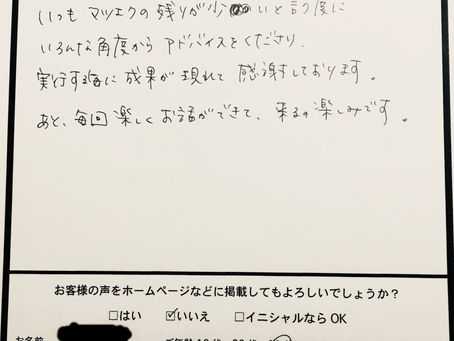 いつも マツエクの 残りが少ないと 言う度に
いろんな角度から アドバイスをくださり、
実行する毎に 成果が 現れて 感謝しております。
あと、毎回 楽しく お話ができて、来るの楽しみです。
お客様の声をホームページなどに掲載してもよろしいでしょうか？
□はい ☑いいえ □イニシャルなら OK
お名前